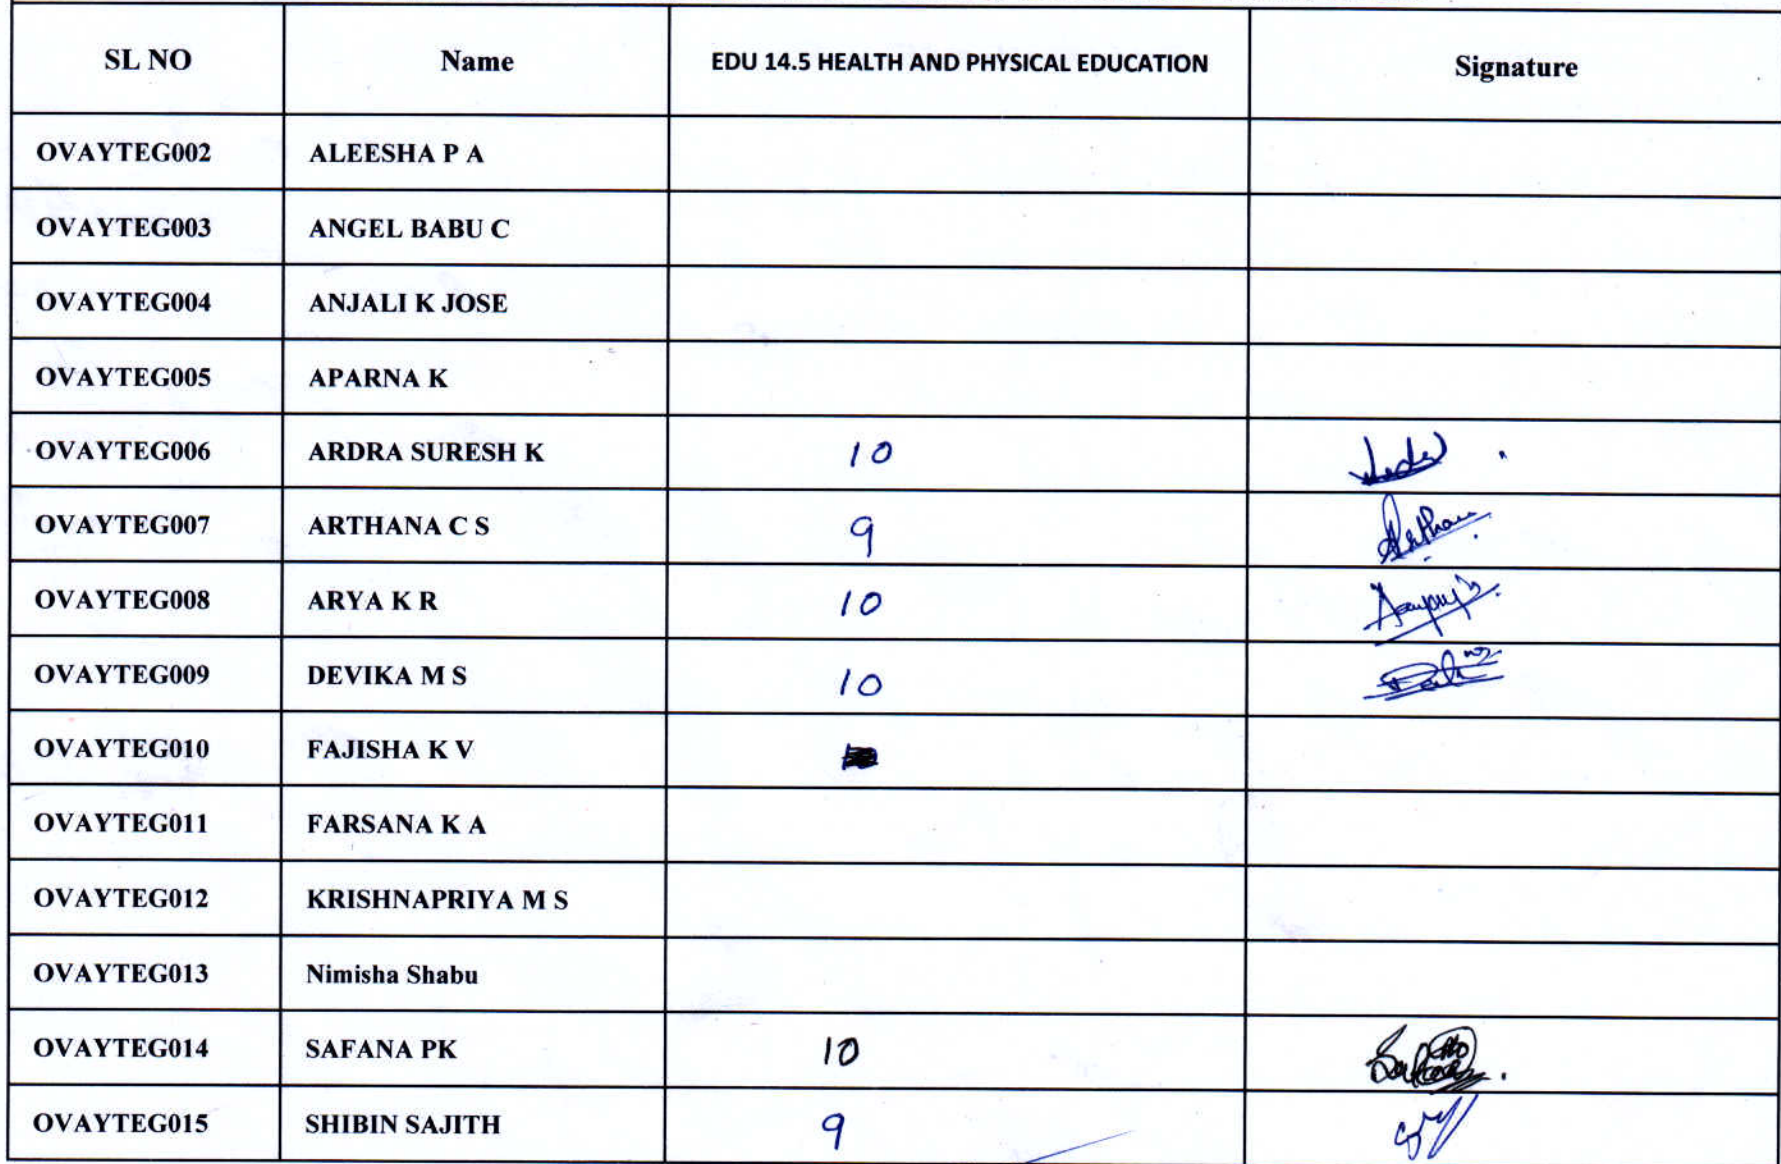 SL NO Name EDU 14.5 HEALTH AND PHYSICAL EDUCATION Signature
OVAYTEG002 ALEESHA P A
OVAYTEG003 ANGEL BABU C
OVAYTEG004 ANJALI K JOSE
OVAYTEG005 APARNA K
OVAYTEG006 ARDRA SURESH K 10
OVAYTEG007 ARTHANA C S 9
OVAYTEG008 ARYA K R 10
OVAYTEG009 DEVIKA M S 10
OVAYTEG010 FAJISHA K V
OVAYTEG011 FARSANA K A
OVAYTEG012 KRISHNAPRIYA M S
OVAYTEG013 Nimisha Shabu
OVAYTEG014 SAFANA PK 10
OVAYTEG015 SHIBIN SAJITH 9